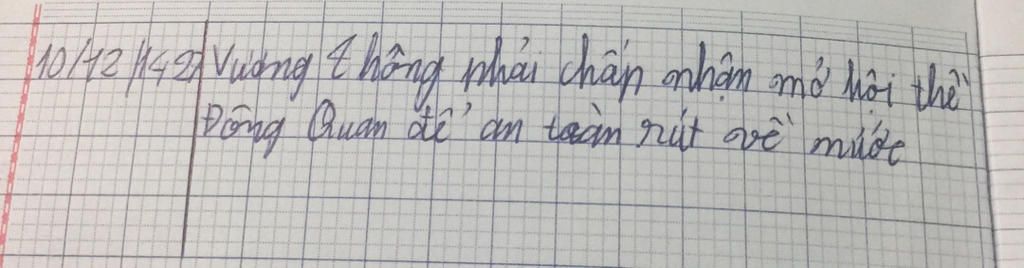 10/12/1427 Vương Thông phải chấp nhận mở hội thề
Đông Quan để an toàn rút về nước